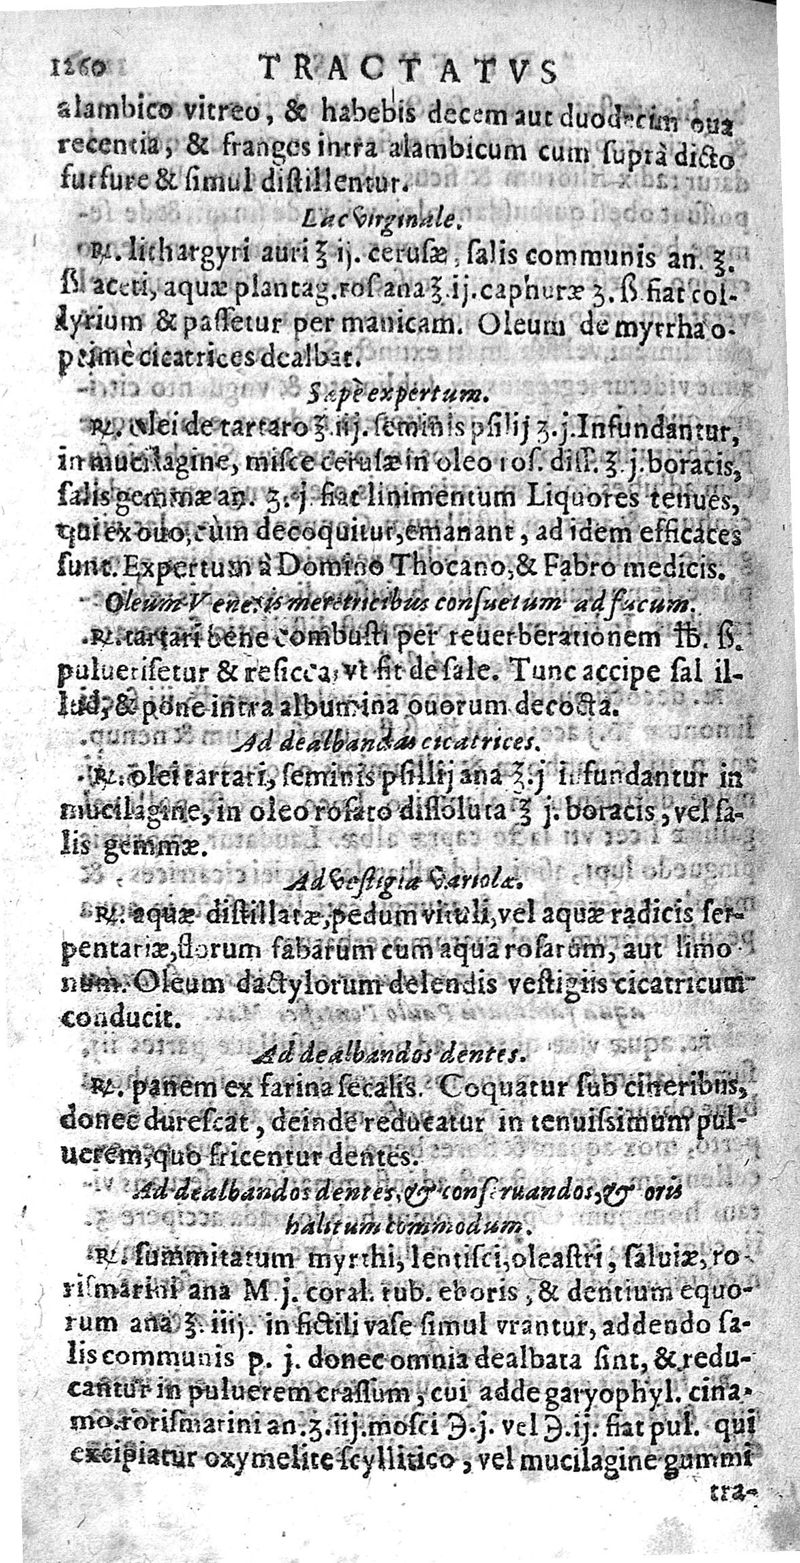 1260 TRACTATVS
alambico vitreo, & habebis decem aut duodecim oua
recentia, & franges intra alambicum cum suprà dicto
furfure & simul distillentur.
Lac Virginale.
℞. lithargyri auri ℥ ij. cerusæ, salis communis an. ℥.
ß aceti, aquæ plantag. ros ana ℥. ij. caphuræ ʒ. ß fiat col-
lyrium & passetur per manicam. Oleum de myrrha o-
ptimè cicatrices dealbat.
Sæpè expertum.
℞. olei de tartaro ℥. iij. seminis psilij ʒ. j. Infundantur,
in mucilagine, misce cerusæ in oleo ros. diss. ℥. j. boracis,
salis gemmæ an. ʒ. j. fiat linimentum Liquores tenues,
qui ex ouo, cùm decoquitur, emanant, ad idem efficaces
sunt. Expertum à Domino Thocano, & Fabro medicis.
Oleum Venetis meretricibus consuetum ad fucum.
℞. tartari bene combusti per reuerberationem ℔. ß.
puluerisetur & resicca, vt fit de sale. Tunc accipe sal il-
lud, & pone intra albumina ouorum decocta.
Ad dealbandas cicatrices.
℞. olei tartari, seminis psillij ana ℥. j infundantur in
mucilagine, in oleo rosato dissoluta ℥ j. boracis, vel sa-
lis gemmæ.
Ad vestigia variolæ.
℞. aquæ distillatæ, pedum vituli, vel aquæ radicis ser-
pentariæ, florum fabarum cum aqua rosarum, aut limo-
num. Oleum dactylorum delendis vestigiis cicatricum
conducit.
Ad dealbandos dentes.
℞. panem ex farina secalis. Coquatur sub cineribus,
donec durescat, deinde reducatur in tenuissimum pul-
uerem, quo fricentur dentes.
Ad dealbandos dentes, & conseruandos, & oris
halitum commodum.
℞. summitatum myrthi, lentisci, oleastri, saluiæ, ro-
rismarini ana M j. coral. rub. eboris, & dentium equo-
rum ana ℥. iiij. in fictili vase simul vrantur, addendo sa-
lis communis p. j. donec omnia dealbata sint, & redu-
cantur in puluerem crassum, cui adde garyophyl. cina-
mo. rorismarini an. ʒ. iij. mosci ℈. j. vel ℈. ij. fiat pul. qui
excipiatur oxymelite scyllitico, vel mucilagine gummi
tra-